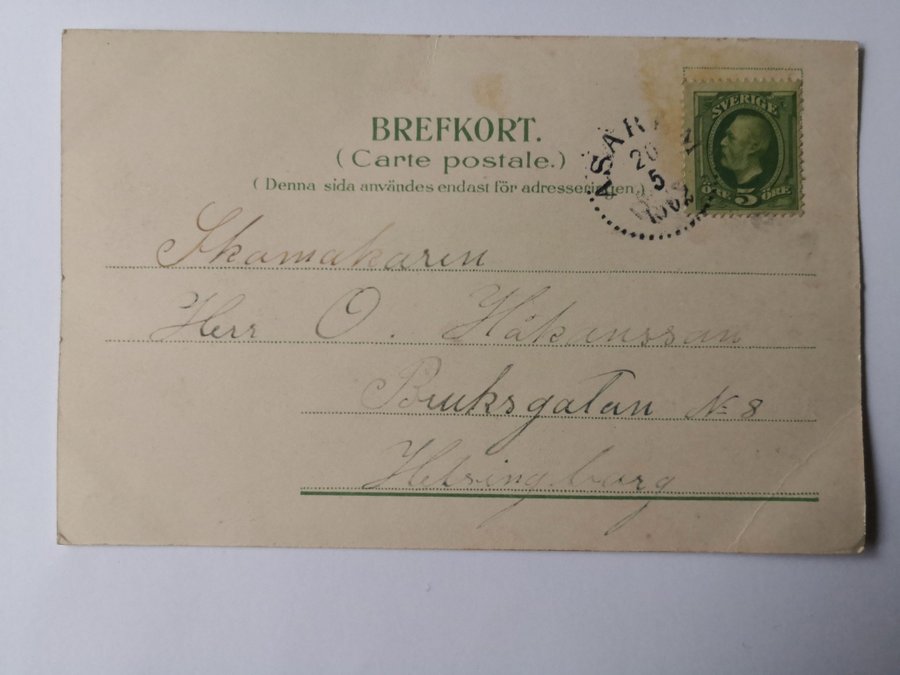 BREFKORT.
(Carte postale.)
(Denna sida användes endast för adresseringen.)
SVERIGE
ÖRE 5 ÖRE
20
5
1902
Skomakaren
Herr O. Håkansson
Bruksgatan № 8
Helsingborg